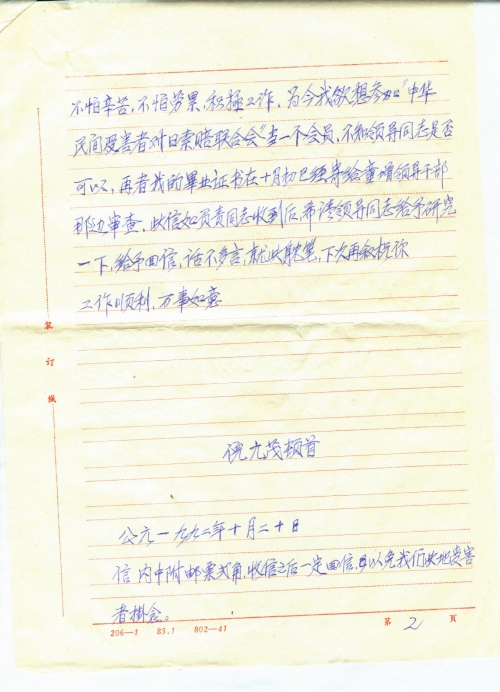 不怕辛苦，不怕劳累，积极工作，为今我欲想参加“中华
民间受害者对日索赔联合会”当一个会员，不知领导同志是否
可以，再者我的毕业证书在十月初已经寄给童增领导干部
那边审查，此信如负责同志收到后希请领导同志给予研究
一下，给予回信，话不多言，就此敬笔，下次再叙祝你
工作顺利，万事如意
装
订
线
九茂顿首
公元一九九二年十月二十日
信内中附邮票弍角，收信之后一定回信，以免我们此地受害
者掛念。
206—1 85.1 802—41
第 2 頁